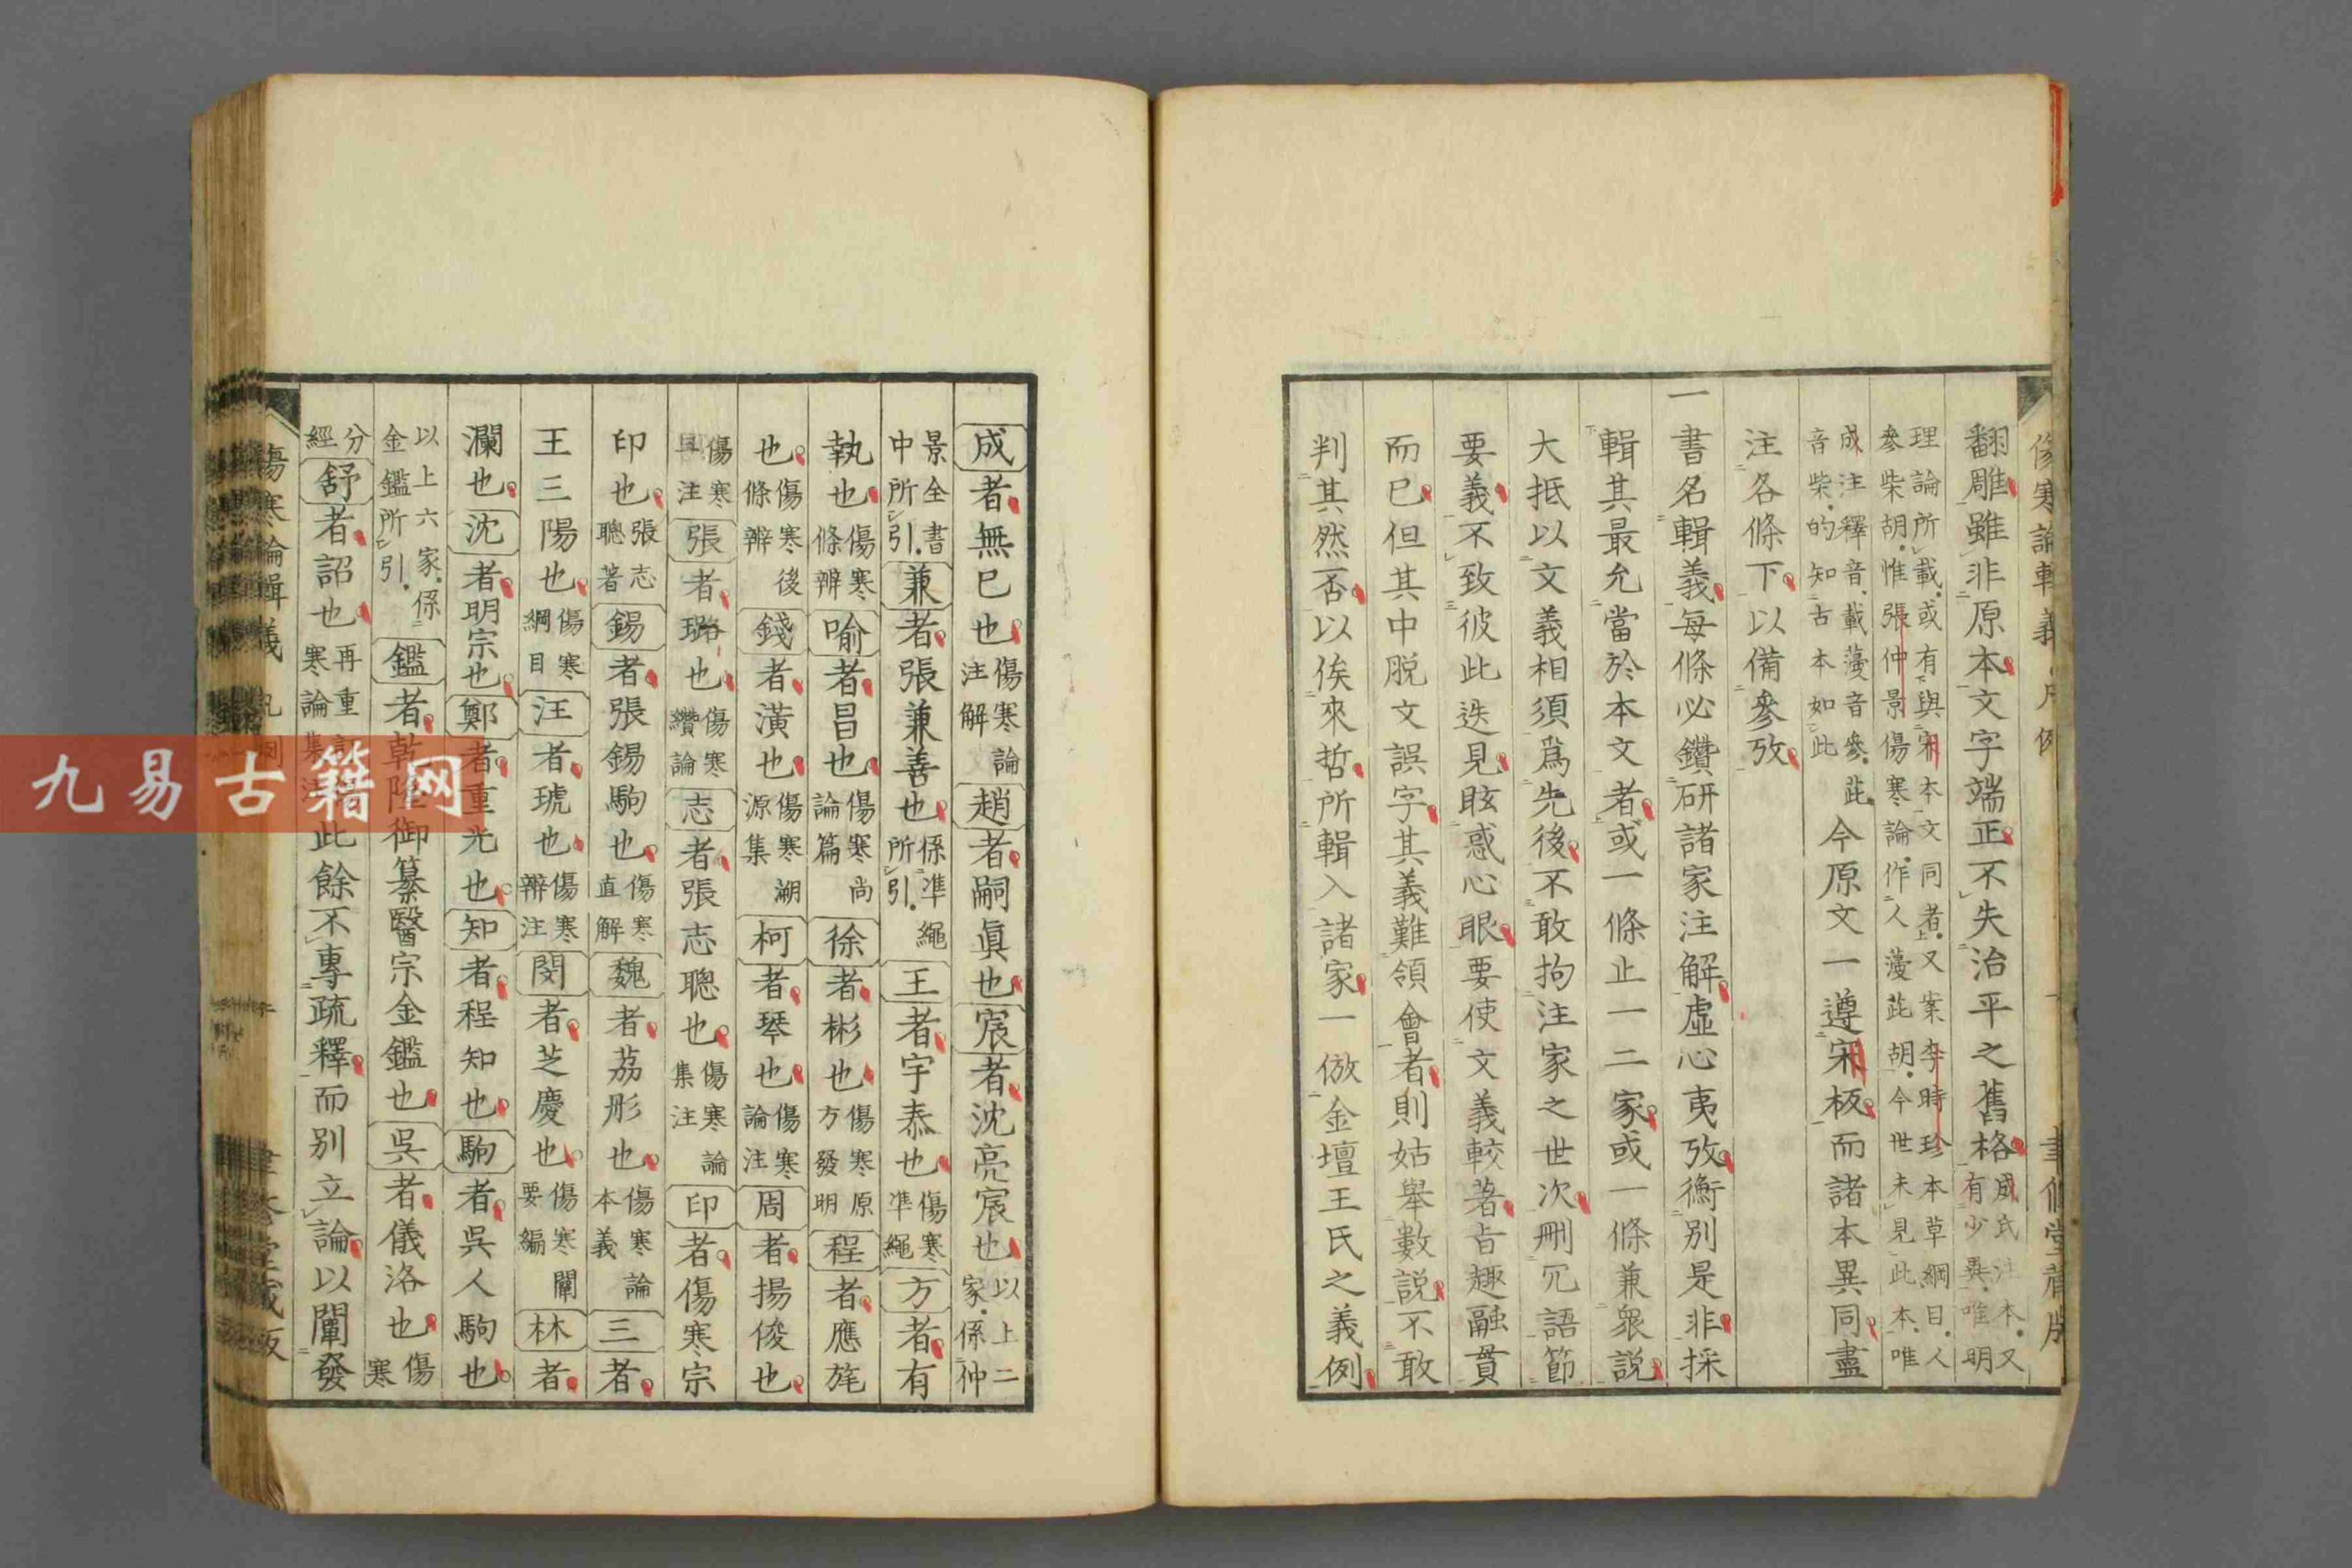 傷寒論輯義 凡例 聿修堂藏版
翻雕雖非原本文字端正不失治平之舊格成氏注本又有少異唯明
理論所載或有與宋本文同者又案李時珍本草綱目人參柴胡惟張仲景傷寒論作人蓡茈胡今世未見此本唯
成注釋音載蓡音參茈音柴的知古本如此今原文一遵宋板而諸本異同盡
注各條下以備參攷
一書名輯義每條必鑽研諸家注解虛心夷攷衡別是非採
輯其最允當於本文者或一條止一二家或一條兼衆說
大抵以文義相須爲先後不敢拘注家之世次刪冗語節
要義不致彼此迭見眩惑心眼要使文義較著旨趣融貫
而已但其中脫文誤字其義難領會者則姑舉數說不敢
判其然否以俟來哲所輯入諸家一倣金壇王氏之義例
成者無已也傷寒論注解趙者嗣眞也宸者沈亮宸也以上二家係仲
景全書中所引兼者張兼善也係準繩所引王者宇泰也傷寒準繩方者有
執也傷寒條辨喻者昌也傷寒尚論篇徐者彬也傷寒原方發明程者應旄
也傷寒後條辨錢者潢也傷寒溯源集柯者琴也傷寒論注周者揚俊也
傷寒注張者璐也傷寒纘論志者張志聰也傷寒論集注印者傷寒宗
印也張志聰著錫者張錫駒也傷寒直解魏者荔彤也傷寒論本義三者
王三陽也傷寒綱目汪者琥也傷寒辨注閔者芝慶也傷寒闡要編林者
瀾也沈者明宗也鄭者重光也知者程知也駒者吳人駒也
以上六家係金鑑所引鑑者乾隆御纂醫宗金鑑也吳者儀洛也傷寒
分經舒者詔也再重寒論集此餘不專疏釋而別立論以闡發
傷寒論輯義 凡例 聿修堂藏版
九易古籍网